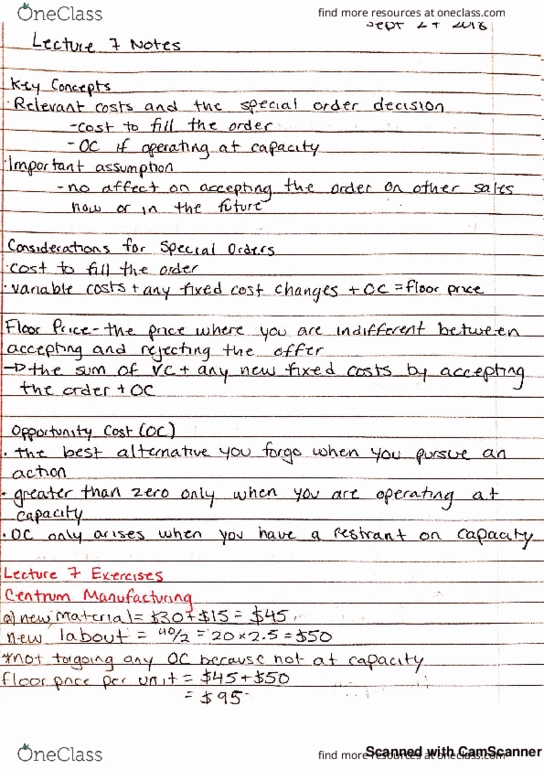 OneClass
find more resources at oneclass.com
Sept 24 2018
Lecture 7 Notes
Key Concepts
·Relevant costs and the special order decision
-cost to fill the order
-OC if operating at capacity
·Important assumption
-no affect on accepting the order on other sales
now or in the future
Considerations for Special Orders
·cost to fill the order
·variable costs + any fixed cost changes + OC = floor price
Floor Price - the price where you are indifferent between
accepting and rejecting the offer
→ the sum of VC + any new fixed costs by accepting
the order + OC
Opportunity Cost (OC)
· the best alternative you forgo when you pursue an
action
· greater than zero only when you are operating at
capacity
· OC only arises when you have a restrant on capacity
Lecture 7 Exercises
Centrum Manufacturing
a) new material = $30 + $15 = $45
new labout = 40/2 = 20 x 2.5 = $50
*not forgoing any OC because not at capacity
floor price per unit = $45 + $50
= $95
OneClass
find more resources at oneclass.com
Scanned with CamScanner